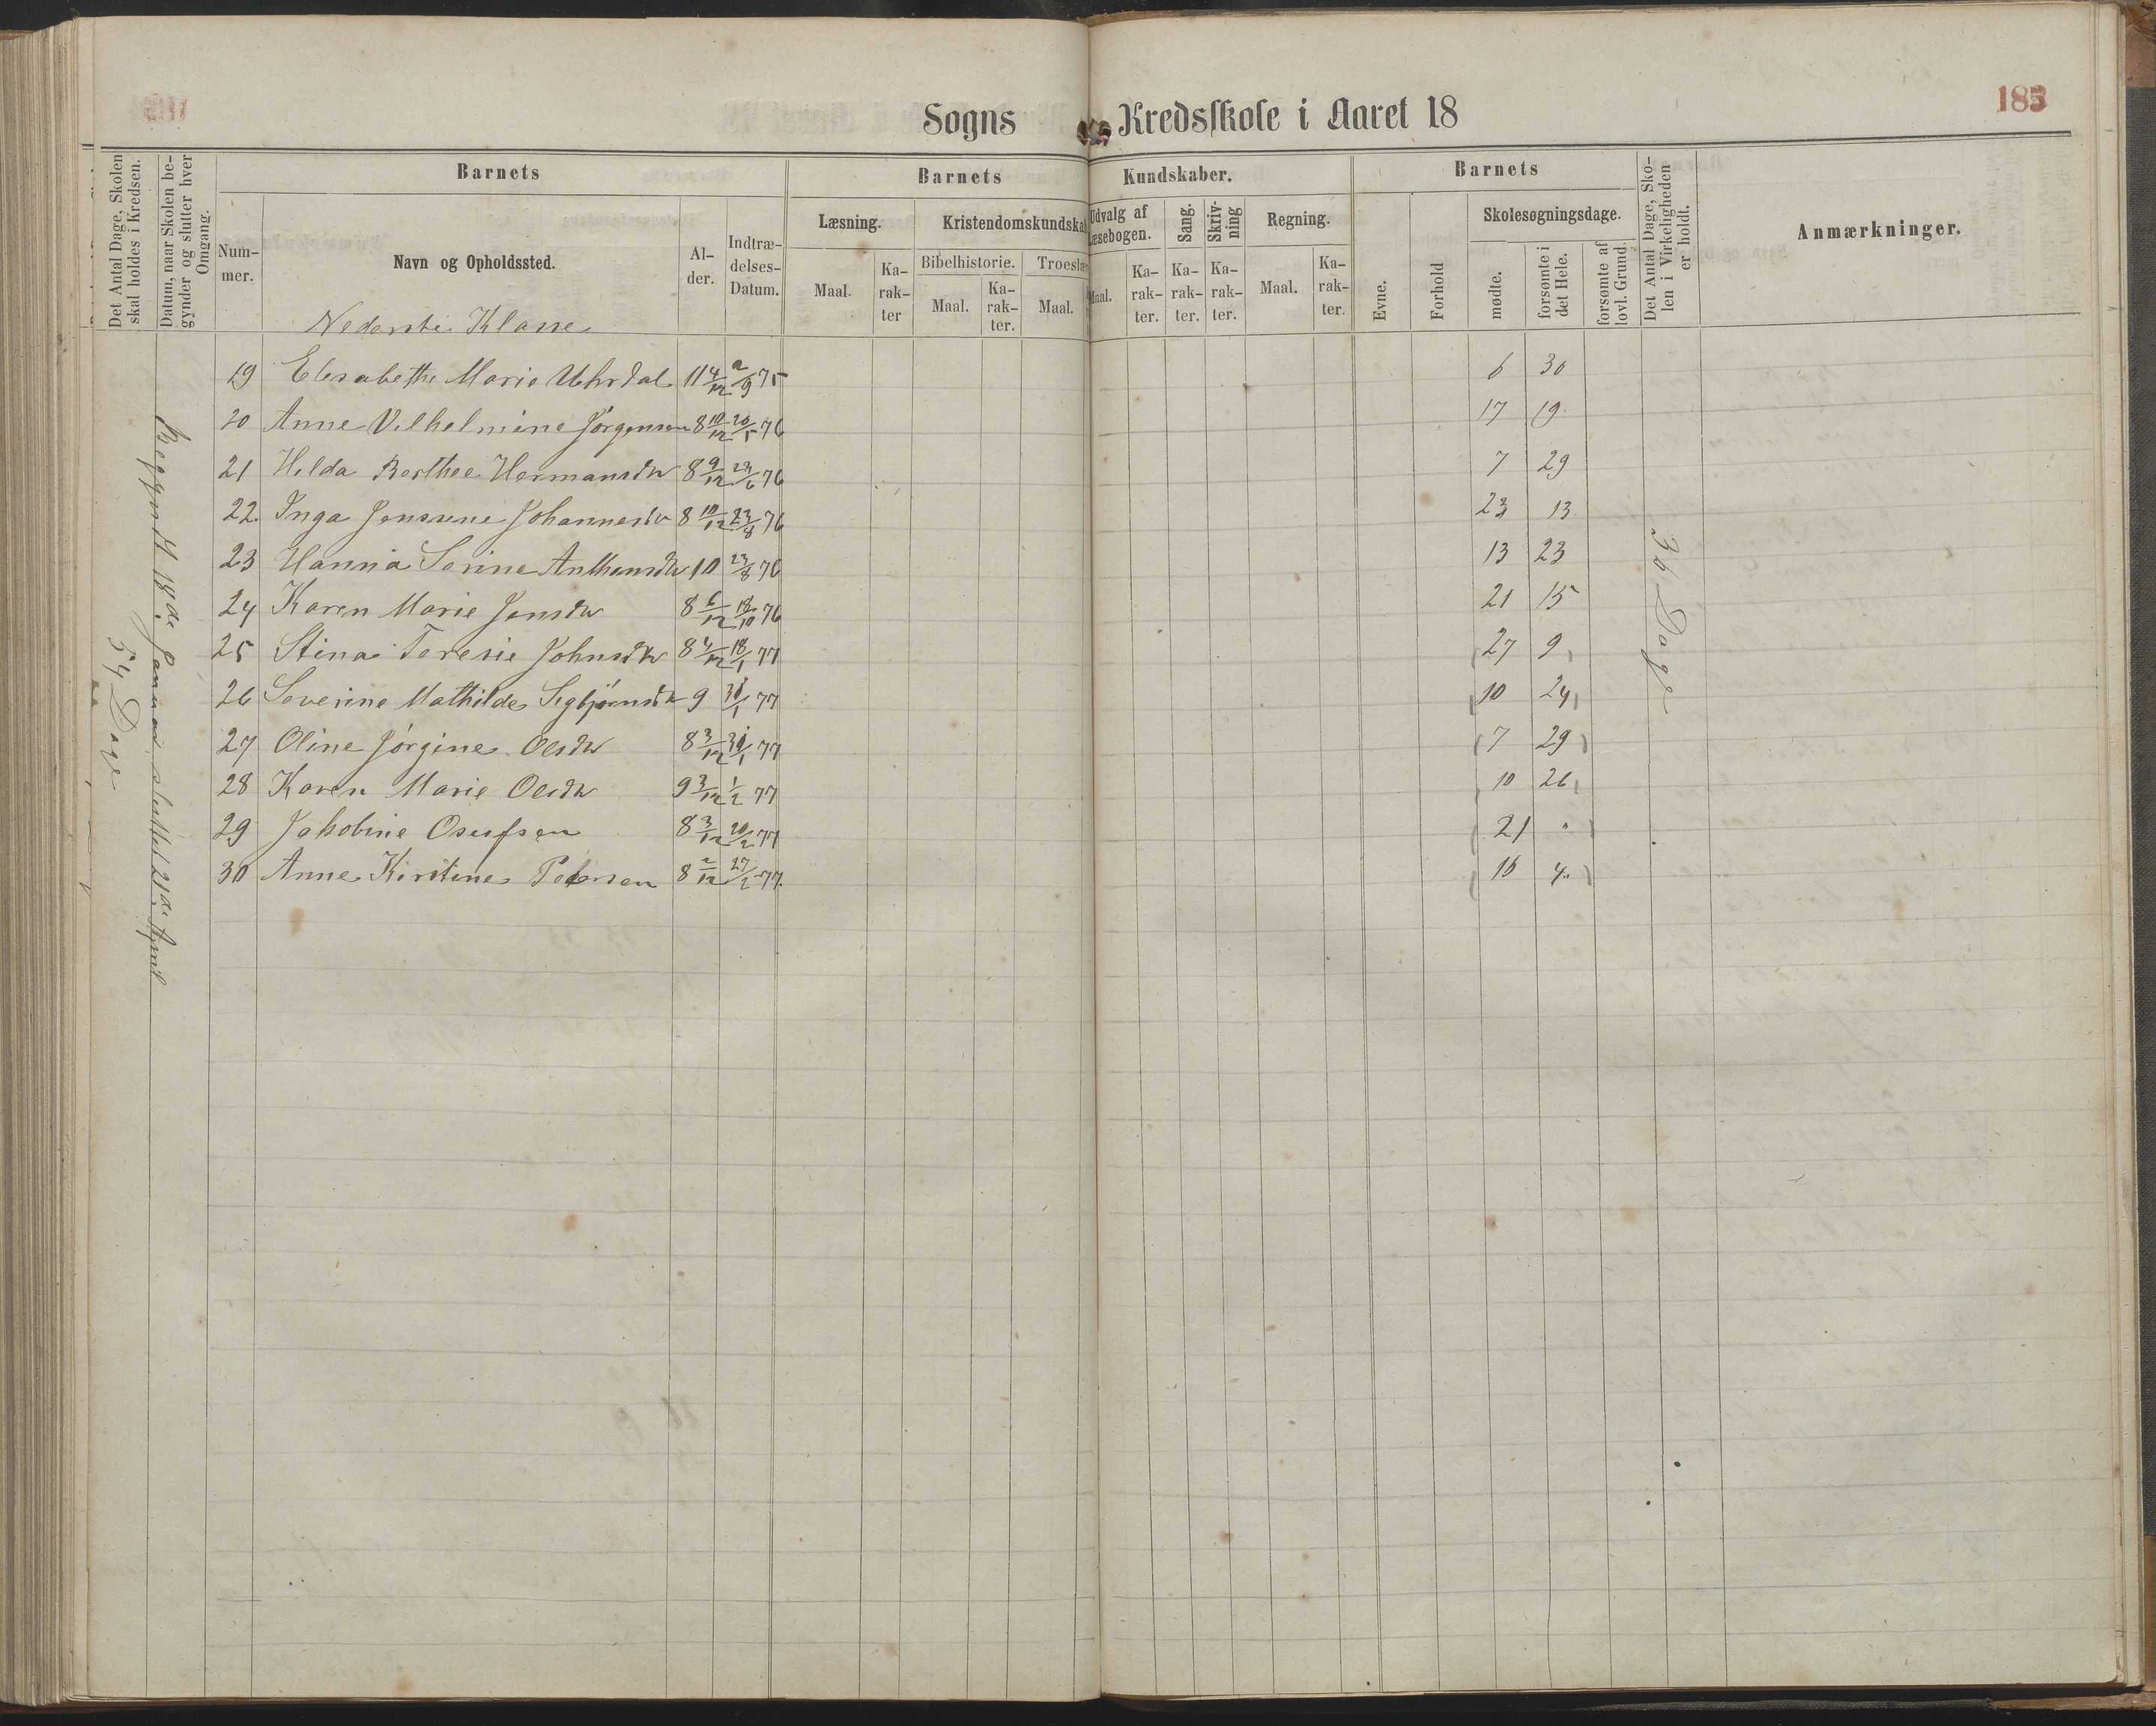 185
Sogns Kredsskole i Aaret 18
Det Antal Dage, Skolen skal holdes i Kredsen.
Datum, naar Skolen begynder og slutter hver Omgang.
Barnets
Nummer.
Navn og Opholdssted.
Alder.
Indtrædelses-Datum.
Barnets Kundskaber.
Læsning.
Maal.
Karakter
Kristendomskundskab
Bibelhistorie.
Maal.
Karakter.
Troeslære
Maal.
Udvalg af Læsebogen.
Maal.
Karakter.
Sang.
Karakter.
Skrivning
Karakter.
Regning.
Maal.
Karakter.
Barnets
Evne.
Forhold
Skolesøgningsdage.
mødte.
forsømte i det Hele.
forsømte af lovl. Grund.
Det Antal Dage, Skolen i Virkeligheden er holdt.
Anmærkninger.
Nederste Klasse
19 Elisabethe Marie Uhrdal 11 4/12 2/9 75 6 30
20 Anne Vilhelmine Jørgensen 8 10/12 20/5 76 17 19
21 Hilda Berthee Hermansdtr 8 9/12 23/6 76 7 29
22. Inga Jensine Johannesdtr 8 10/12 23/8 76 23 13
23 Hanna Serine Anthonsdtr 10 23/8 76 13 23
24 Karen Marie Jensdtr 8 6/12 18/10 76 21 15
25 Stina Teresie Johnsdtr 8 4/12 18/1 77 27 9
26 Severine Mathilde Sigbjørnsdtr 9 /1 77 10 24
27 Oline Jørgine Olsdtr 8 3/12 /1 77 7 29
28 Karen Marie Olsdtr 9 3/12 1/2 77 10 26
29 Jakobine Osufsen 8 3/12 20/2 77 21 "
30 Anne Kirstine Petersen 8 2/12 27/2 77. 16 4"
54 Dage
Begyndt 18de Januar, sluttet 21de April
36 Dage